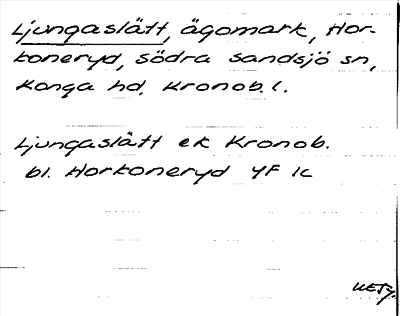 Ljungaslätt, ägomark, Hor-
koneryd, södra sandsjö sn,
Konga hd. Kronob. l.
Ljungaslätt ek Kronob.
bl. Horkoneryd 4F 1c